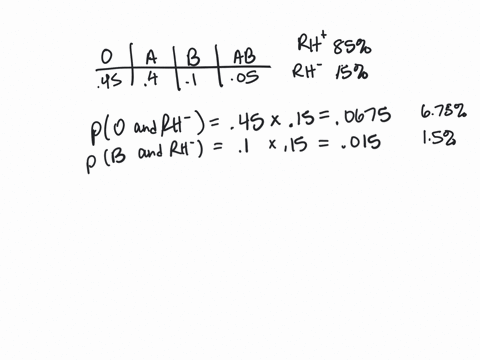 O A B AB RH+ 85%
.45 .4 .1 .05 RH- 15%
P(O and RH-) = .45 x .15 = .0675 6.75%
P(B and RH-) = .1 x .15 = .015 1.5%